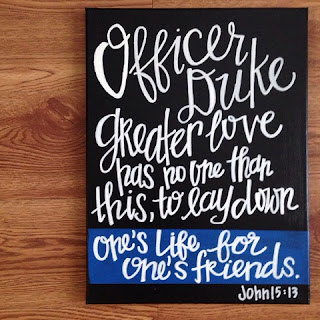 Officer
Duke
greater love
has no one than
this, to lay down
one's life for
one's friends.
John 15:13